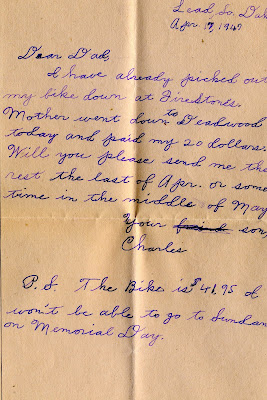 Lead, So. Dak
Apr. 9, 1947
Dear Dad,
I have already picked out
my bike down at Firestones.
Mother went down to Deadwood
today and paid my 20 dollars.
Will you please send me the
rest the last of Apr. or some
time in the middle of May
Your son,
Charles
P.S. The Bike is $41.95 I
won't be able to go to Sundan
on Memorial Day.